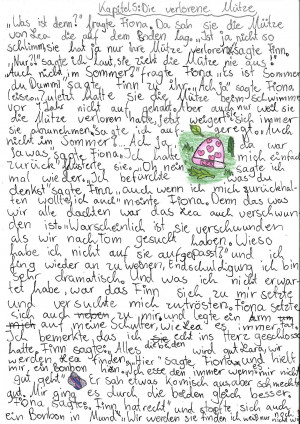 Kapitel 5: Die verlorene Mütze
"Was ist denn?" fragte Fiona. Da sah sie die Mütze
von Lea die auf dem Boden lag. "Ist ja nicht so
schlimm, sie hat ja nur ihre Mütze verloren." sagte Finn
"Nur?!" sagte ich laut, sie zieht die Mütze nie aus!"
"Auch nicht im Sommer?" fragte Fiona "Es ist Sommer
du Dummi" sagte Finn zu ihr. "Ach ja" sagte Fiona
leise. hat sie die Mütze beim Schwimmen
vor Jahr nicht auf gehabt. Aber auch nur weil sie
die Mütze verloren hatte. Jetzt weigert sich immer
sie abzunehmen. Sagte ich auf geregt. "Auch
nicht im Sommer?" "Ach Ja" da war
ja was sagte Fiona. Ich hatte mich einfach
zurück sie. "Oh nein" sagte ich
mal wieder. "Ich befürchte was du
denkst" sagte Finn "auch wenn ich mich zurückhal-
ten wollte, ich auch" meinte Fiona. Denn das was
wir alle dachten war das Lea auch verschwun-
den ist. "Warscheinlich ist sie verschwunden
als wir nach Tom gesucht haben. Wieso
habe ich nicht auf sie aufgepasst?" und ich
fing wieder an zu weinen. Entschuldigung ich bin
sehr dramatische und was ich nicht erwar-
tet habe war das Finn sich zu mir setzte
und versuchte mich zu trösten. Fiona setzte
sich auch neben zu mir und legte ein Arm
mich auf meine Schulter, wie Lea es immer tat.
Ich bemerkte, das ich sie echt ins Herz geschlosse
hatte. Finn sagte: "Alles wird gut Lea, wir
werden Lea finden. "Hier" sagte Fiona und hielt
mir ein Bonbon hin. "Ich esse den immer wenn mir nicht
gut geht" Er sah etwas komisch aus, aber schmeckte
gut. Mir ging es durch die beiden gleich besser.
Fiona sagte: "Finn hat recht" und stopfte sich auch
ein Bonbon in Mund. "Wir werden sie finden ich weiß nur nicht